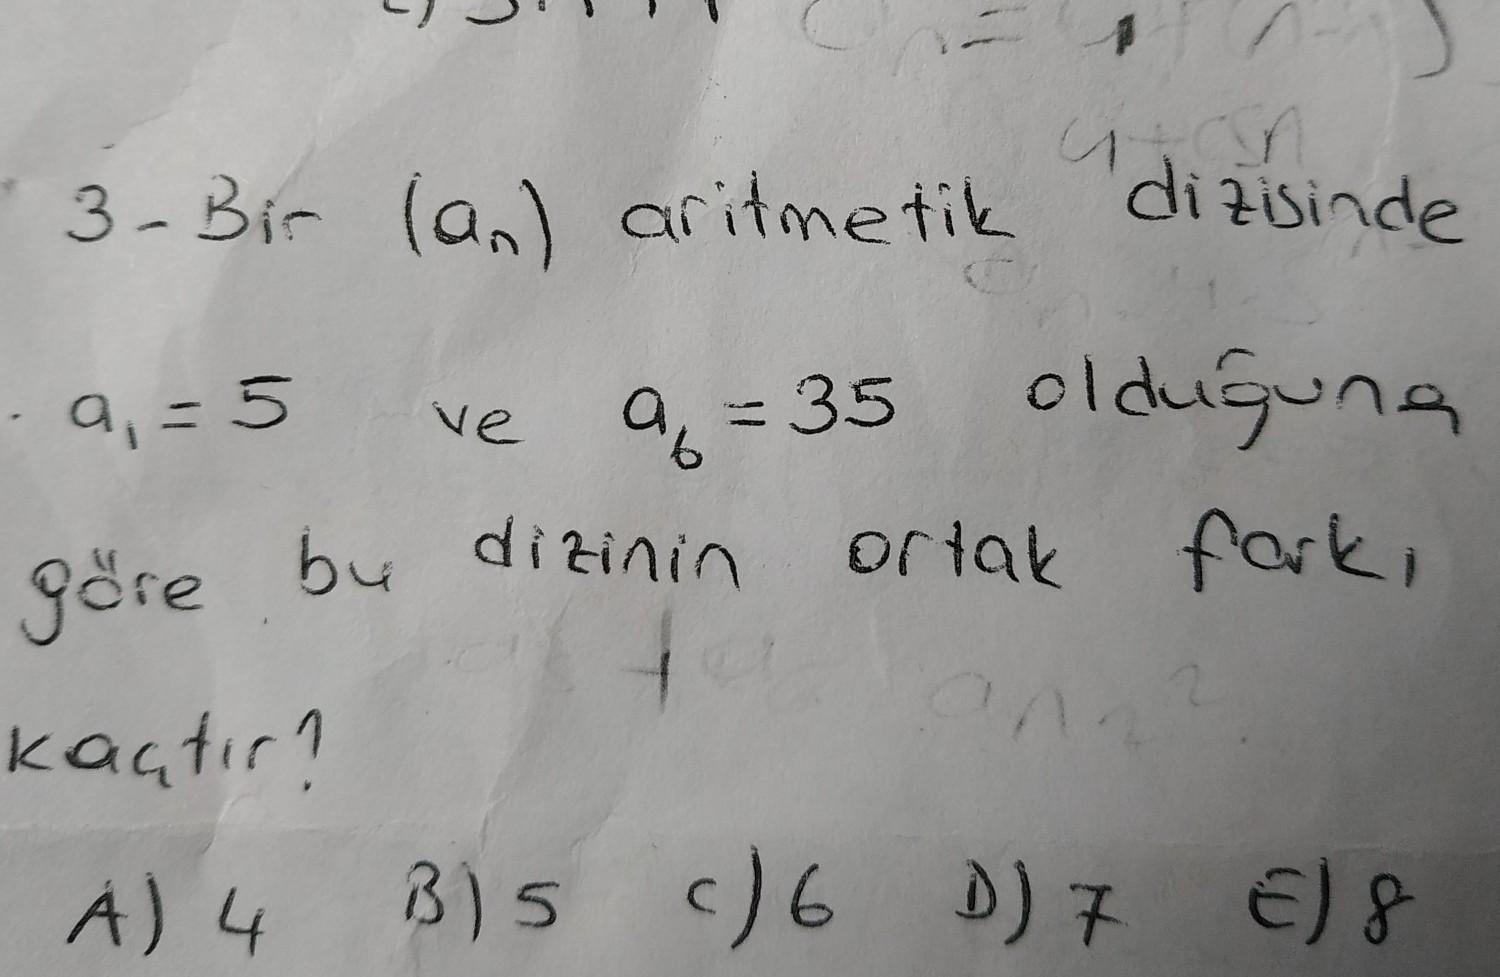 3- Bir (aₙ) aritmetik dizisinde
a₁ = 5 ve a₆ = 35 olduğuna
göre bu dizinin ortak farkı
kaçtır?
A) 4 B) 5 C) 6 D) 7 E) 8